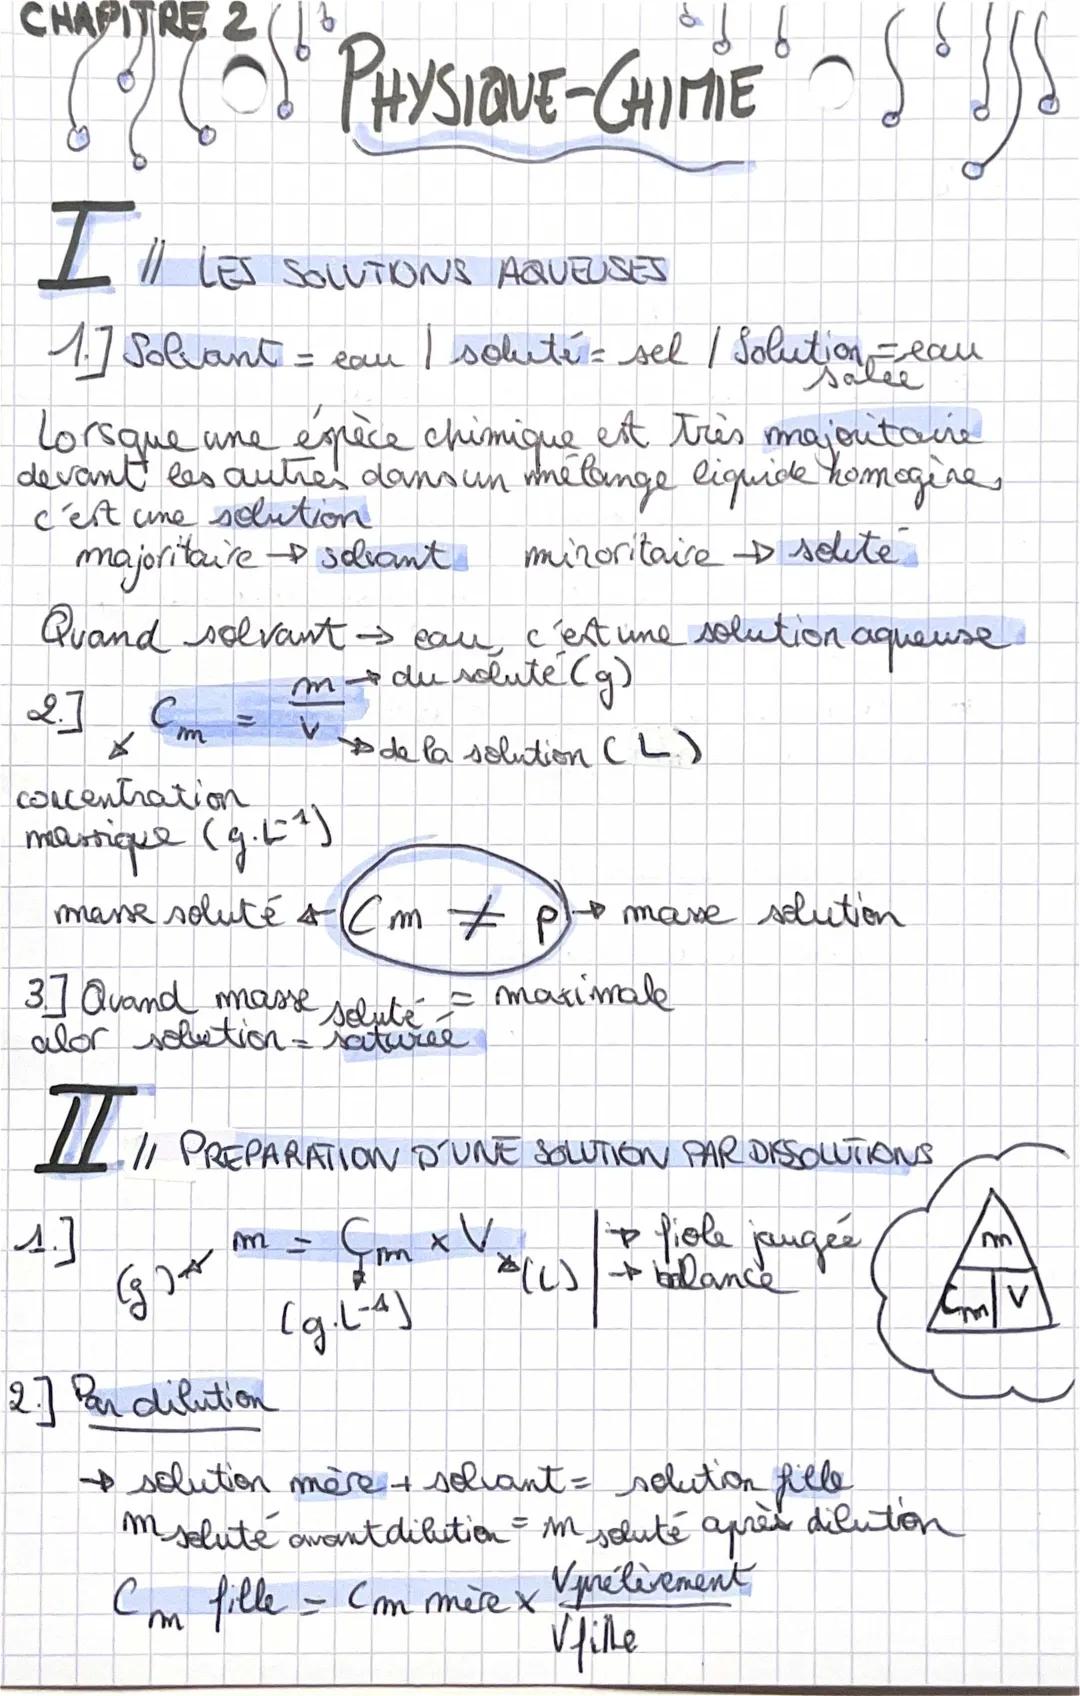 CHAPITRE 2
PHYSIQUE-CHIMIE
I // LES SOLUTIONS AQUEUSES
1.] Solvant = eau | soluté = sel / Solution = eau
salée
Lorsque une éspèce chimique est très majoritaire
devant les autres dans un mélange liquide homogène,
c'est une solution
majoritaire → solvant minoritaire → soluté
Quand solvant → eau, c'est une solution aqueuse
2.] Cm = m/V
→ du soluté (g)
→ de la solution (L)
concentration
massique (g.L⁻¹)
masse soluté ← Cm ≠ ρ → masse solution
3.] Quand masse soluté = maximale
alor solution = saturée
II // PREPARATION D'UNE SOLUTION PAR DISSOLUTIONS
1.] m = Cm × V | → fiole jaugée
(g) (L) | → balance
(g.L⁻¹)
m
Cm | V
2.] Par dilution
→ solution mère + solvant = solution fille
m soluté avant dilution = m soluté après dilution
Cm fille = Cm mère × Vprélèvement
Vfille